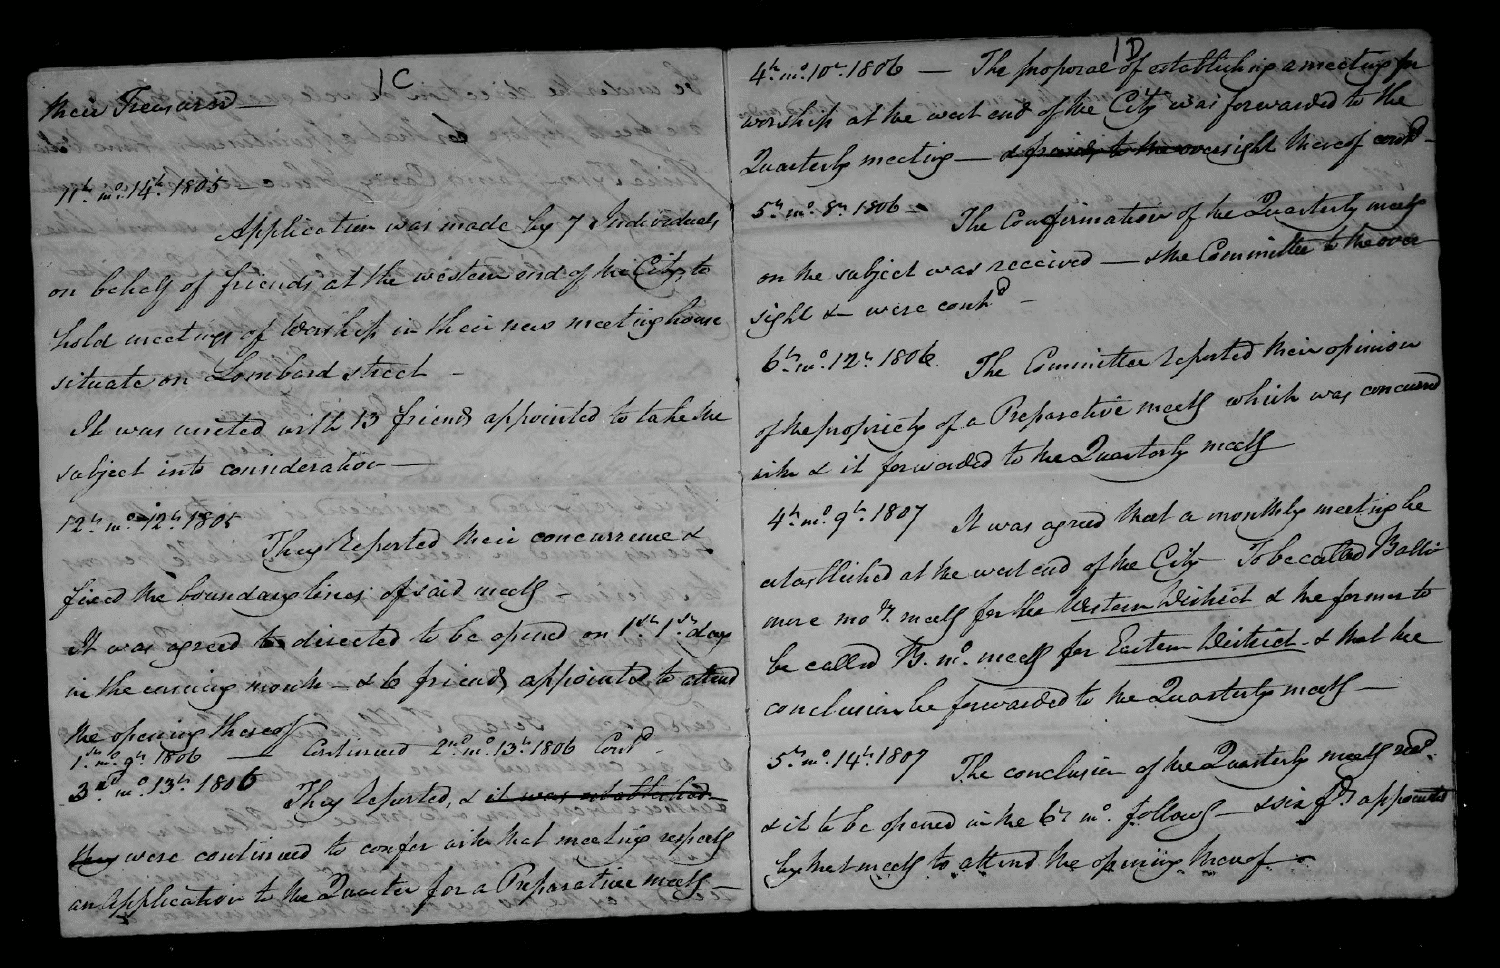 1C
their Treasurer —
11th mo. 14th 1805 —
Application was made by 7 Individuals
on behalf of friends at the western end of the City, to
hold meetings of Worship in their new meeting house
situate on Lombard street —
It was united with & 13 friends appointed to take the
subject into consideration —
12th mo. 12th 1805
They Reported their concurrence &
fixed the boundary lines of said meetg —
It was agreed to directed to be opened on 1st 1st day
in the ensuing month — & 6 friends appointed to attend
the opening thereof
1st mo. 9th 1806 — Continued 2nd mo. 13th 1806 Contd —
3rd mo. 13th 1806
They Reported, & it was established
they were continued to confer with that meeting respectg
an application to the Quarter for a Preparative meetg —
1D
4th mo. 10th 1806 — The proposal of establishing a meeting for
worship at the west end of the City was forwarded to the
Quarterly meeting — & friends to the oversight thereof contd —
5th mo. 8th 1806 — The Confirmation of the Quarterly meetg
on the subject was received — & the Committee to the over
sight & — were contd —
6th mo. 12th 1806 The Committee reported their opinion
of the propriety of a Preparative meetg which was concurred
with & it forwarded to the Quarterly meetg
4th mo. 9th 1807 It was agreed that a monthly meeting be
established at the west end of the City To be called Balti
more moy. meetg for the Western District & the former to
be called B. mo. meetg for Eastern District & that the
conclusion be forwarded to the Quarterly meetg —
5th mo. 14th 1807 The conclusion of the Quarterly meetg recd.
& it to be opened in the 6th mo. followg — & six fds appointed
by that meetg to attend the opening thereof —